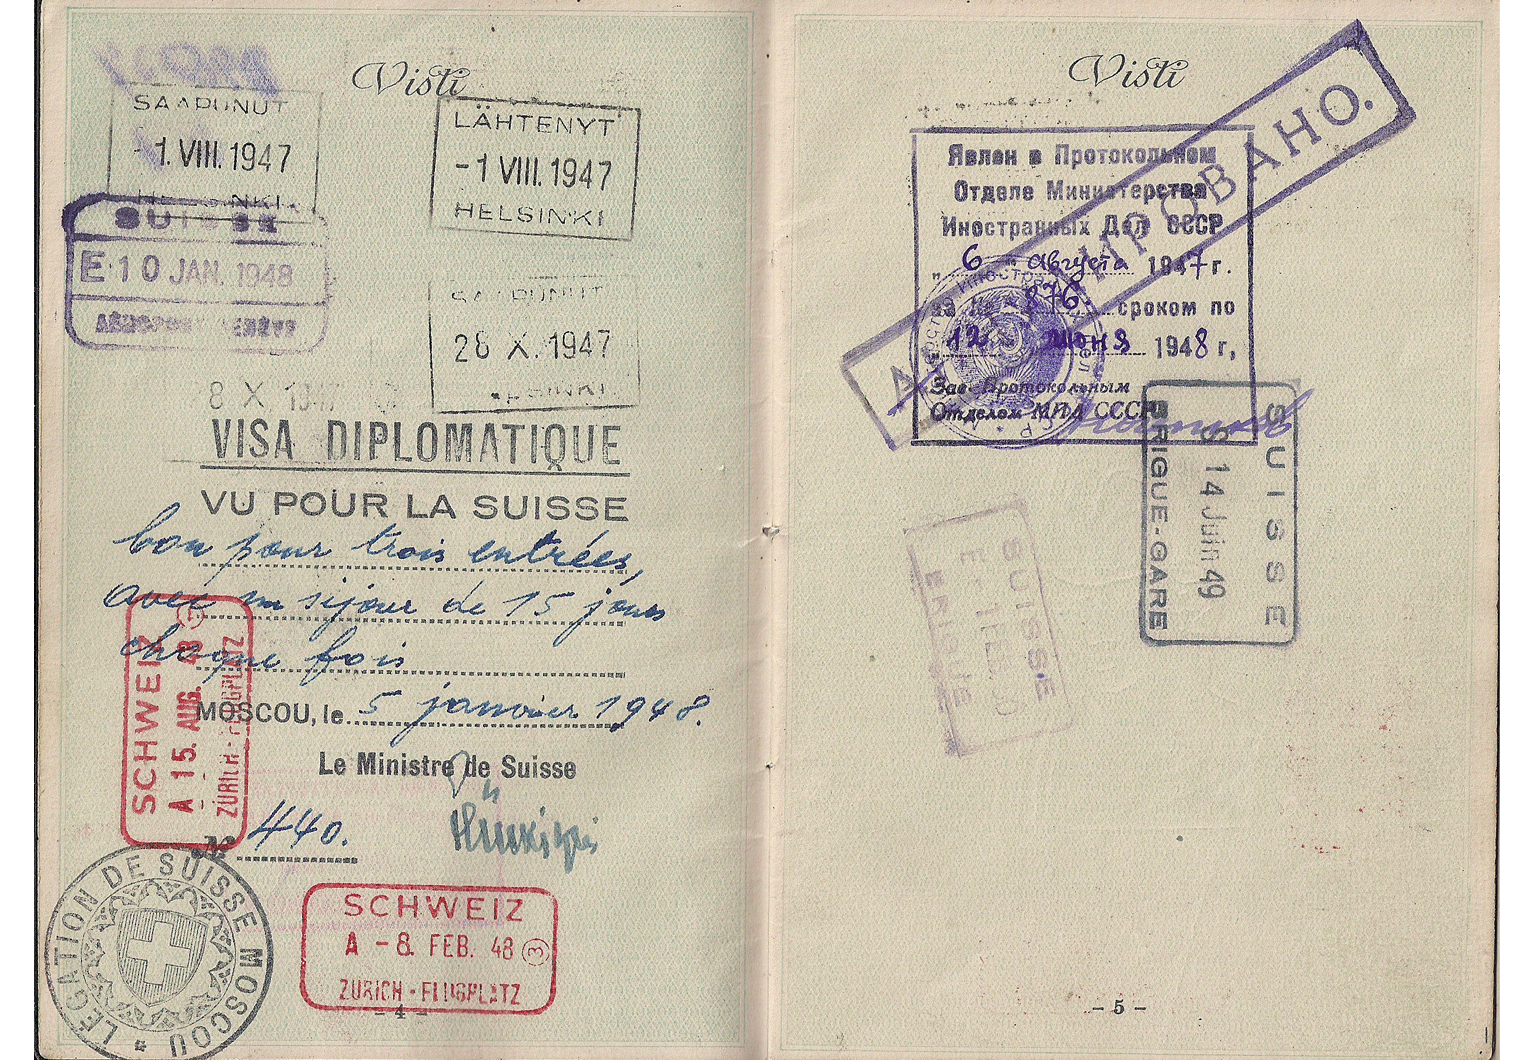 Visti
SAAPUNUT
-1. VIII. 1947
HELSINKI
LÄHTENYT
-1 VIII. 1947
HELSINKI
SUISSE
E 10 JAN. 1948
AÉROPORT GENÈVE
SAAPUNUT
28 X. 1947
HELSINKI
8 X. 1947
VISA DIPLOMATIQUE
VU POUR LA SUISSE
bon pour trois entrées,
avec un séjour de 15 jours
chaque fois
MOSCOU, le 5 janvier 1948.
Le Ministre de Suisse
№ 440.
SCHWEIZ
A 15. AUG. 48 3
ZÜRICH - FLUGPLATZ
LÉGATION DE SUISSE MOSCOU *
SCHWEIZ
A - 8. FEB. 48 3
ZÜRICH - FLUGPLATZ
- 4 -
Visti
Явлен в Протокольном
Отделе Министерства
Иностранных Дел СССР
„ 6 " Августа 1947 г.
за № 876. сроком по
12 июня 1948 г,
Зав. Протокольным
Отделом МИД СССР
SUISSE
S 14 Juin 49
BRIGUE-GARE
SUISSE
BRIGUE
- 5 -